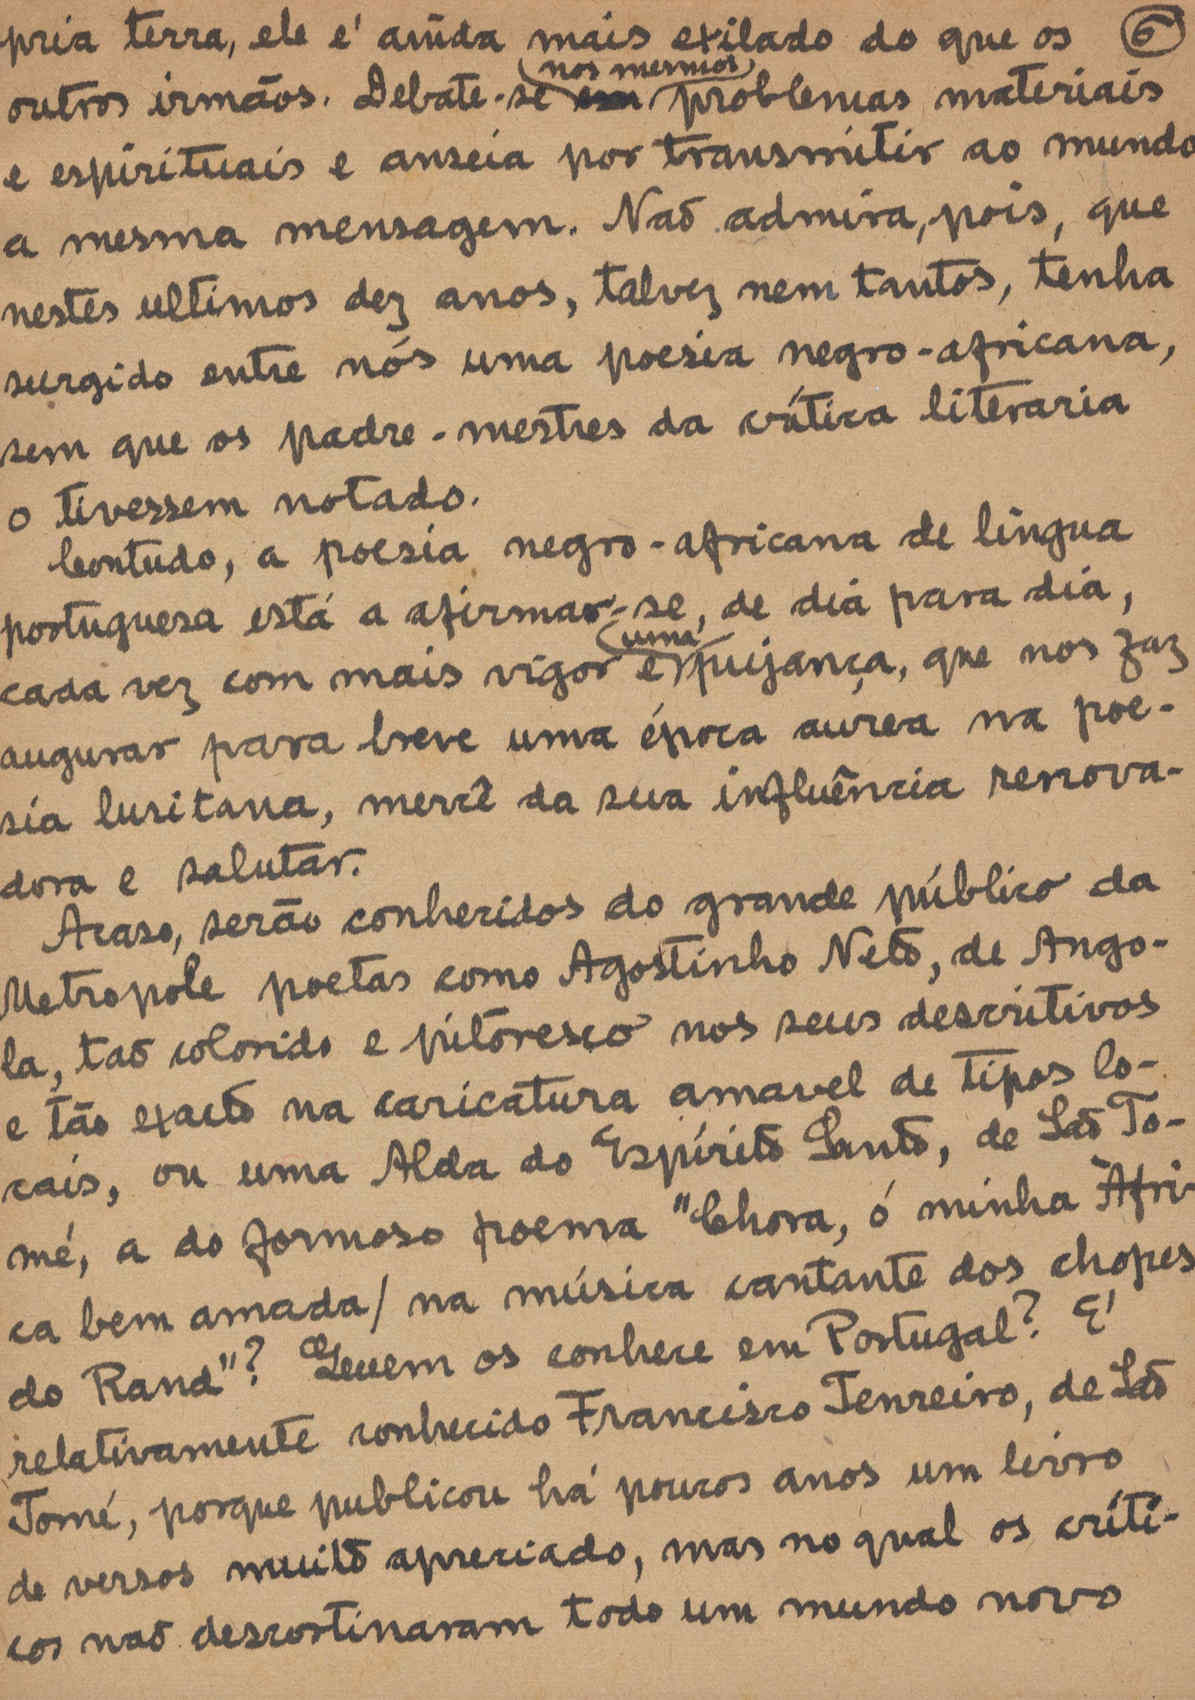 pria terra, ele é ainda mais exilado do que os 6
nos mesmos
outros irmãos. Debate-se em problemas materiais
e espirituais e anseia por transmitir ao mundo
a mesma mensagem. Não admira, pois, que
nestes ultimos dez anos, talvez nem tantos, tenha
surgido entre nós uma poesia negro-africana,
sem que os padre-mestres da crítica literaria
o tivessem notado.
Contudo, a poesia negro-africana de língua
portuguesa está a afirmar-se, de dia para dia,
uma
cada vez com mais vigor e pujança, que nos faz
augurar para breve uma época aurea na poe-
sia lusitana, mercê da sua influência renova-
dora e salutar.
Acaso, serão conhecidos do grande público da
Metropole poetas como Agostinho Neto, de Ango-
la, tão colorido e pitoresco nos seus descritivos
e tão exacto na caricatura amavel de tipos lo-
cais, ou uma Alda do Espírito Santo, de São To-
mé, a do formoso poema "Chora, ó minha Áfri-
ca bem amada/ na música cantante dos chopes
do Rand"? Quem os conhece em Portugal? É
relativamente conhecido Francisco Tenreiro, de São
Tomé, porque publicou há poucos anos um livro
de versos muito apreciado, mas no qual os críti-
cos não descortinaram todo um mundo novo